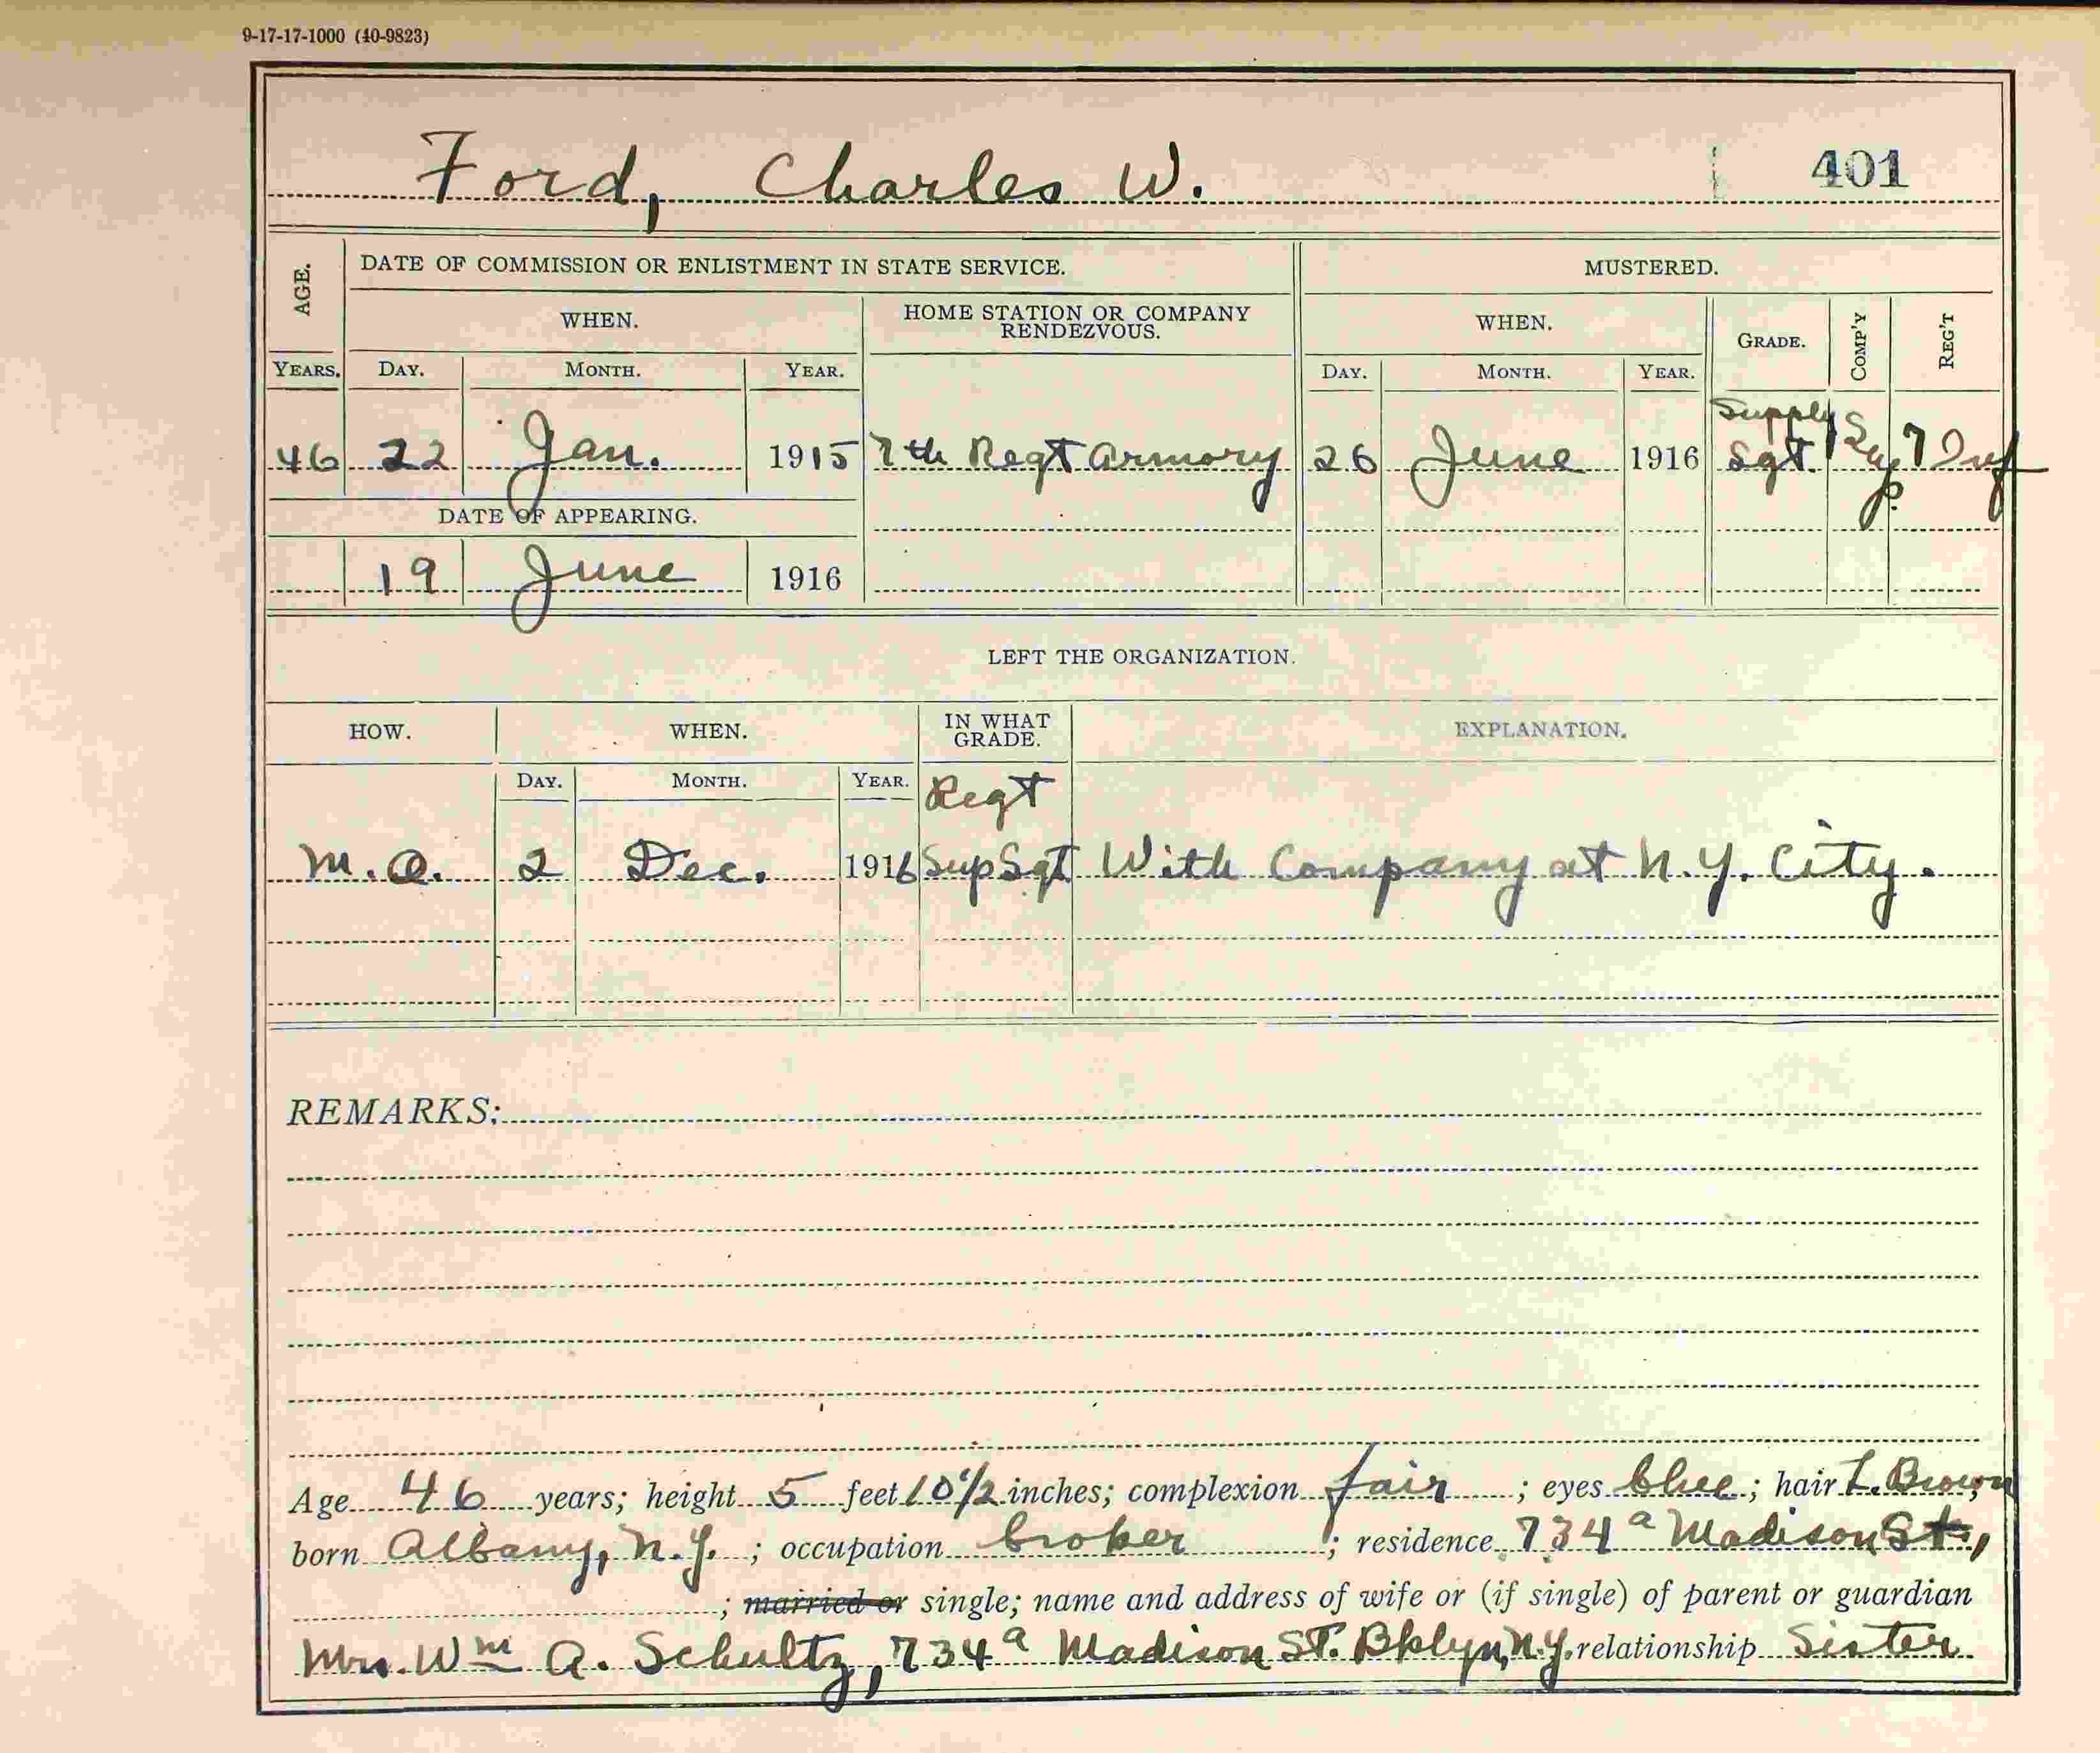 9-17-17-1000 (40-9823)
Ford, Charles W. 401
AGE. DATE OF COMMISSION OR ENLISTMENT IN STATE SERVICE. MUSTERED.
WHEN. HOME STATION OR COMPANY RENDEZVOUS. WHEN. GRADE. COMP'Y REG'T
YEARS. DAY. MONTH. YEAR. DAY. MONTH. YEAR.
Supply
46 22 Jan. 1915 7th Regt Armory 26 June 1916 Sgt Sup. 7 Inf
DATE OF APPEARING.
19 June 1916
LEFT THE ORGANIZATION.
HOW. WHEN. IN WHAT GRADE. EXPLANATION.
DAY. MONTH. YEAR. Regt
M.O. 2 Dec. 1916 Sup Sgt With Company at N.Y. City.
REMARKS:
Age 46 years; height 5 feet 10 1/2 inches; complexion fair ; eyes blue ; hair L. Brown;
born Albany, N.Y. ; occupation broker ; residence 734 a Madison St.,
; married or single; name and address of wife or (if single) of parent or guardian
Mrs. Wm A. Schultz, 734 a Madison St. Bklyn, N.Y. relationship Sister